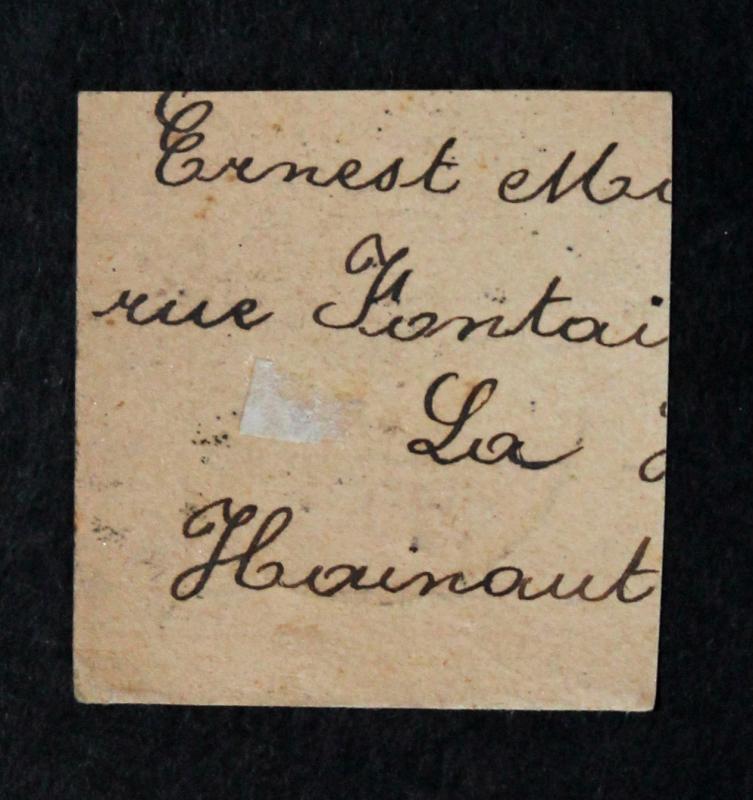 Ernest
rue Fontai
La
Hainaut